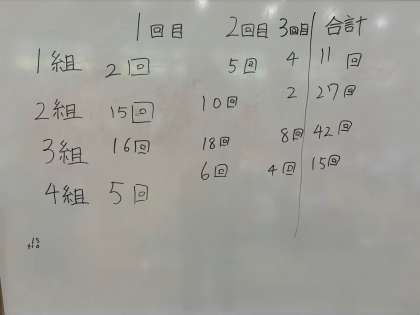 1回目 2回目 3回目 合計
1組 2回 5回 4 11回
2組 15回 10回 2 27回
3組 16回 18回 8回 42回
4組 5回 6回 4回 15回